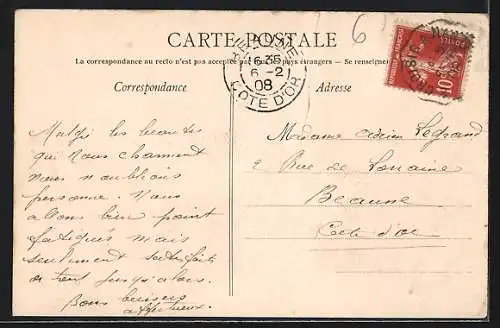 CARTE POSTALE
La correspondance au recto n'est pas acceptée par tous les pays étrangers - Se renseigner
Correspondance
Adresse
6
BEAUNE
6 35
6 -2
08
COTE D'OR
10
Malgré les beautés
qui nous charment
nous n'oublions
personne. Nous
allons bien point
fatigués mais
seulement
jusqu'alors.
Bons baisers
affectueux.
Madame Adrien Legrand
2 Rue de Lorraine
Beaune
Côte d'or